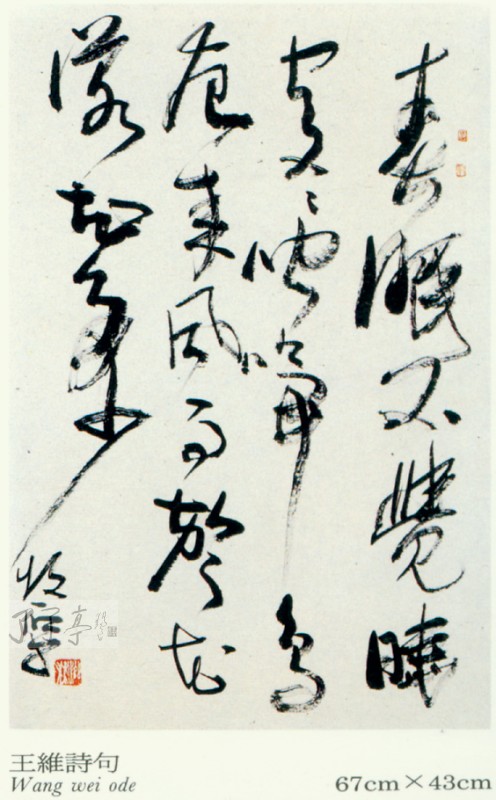 春眠不覺曉
處々聞啼鳥
夜来風雨聲花
落知多少
王維詩句
Wang wei ode
67cm×43cm